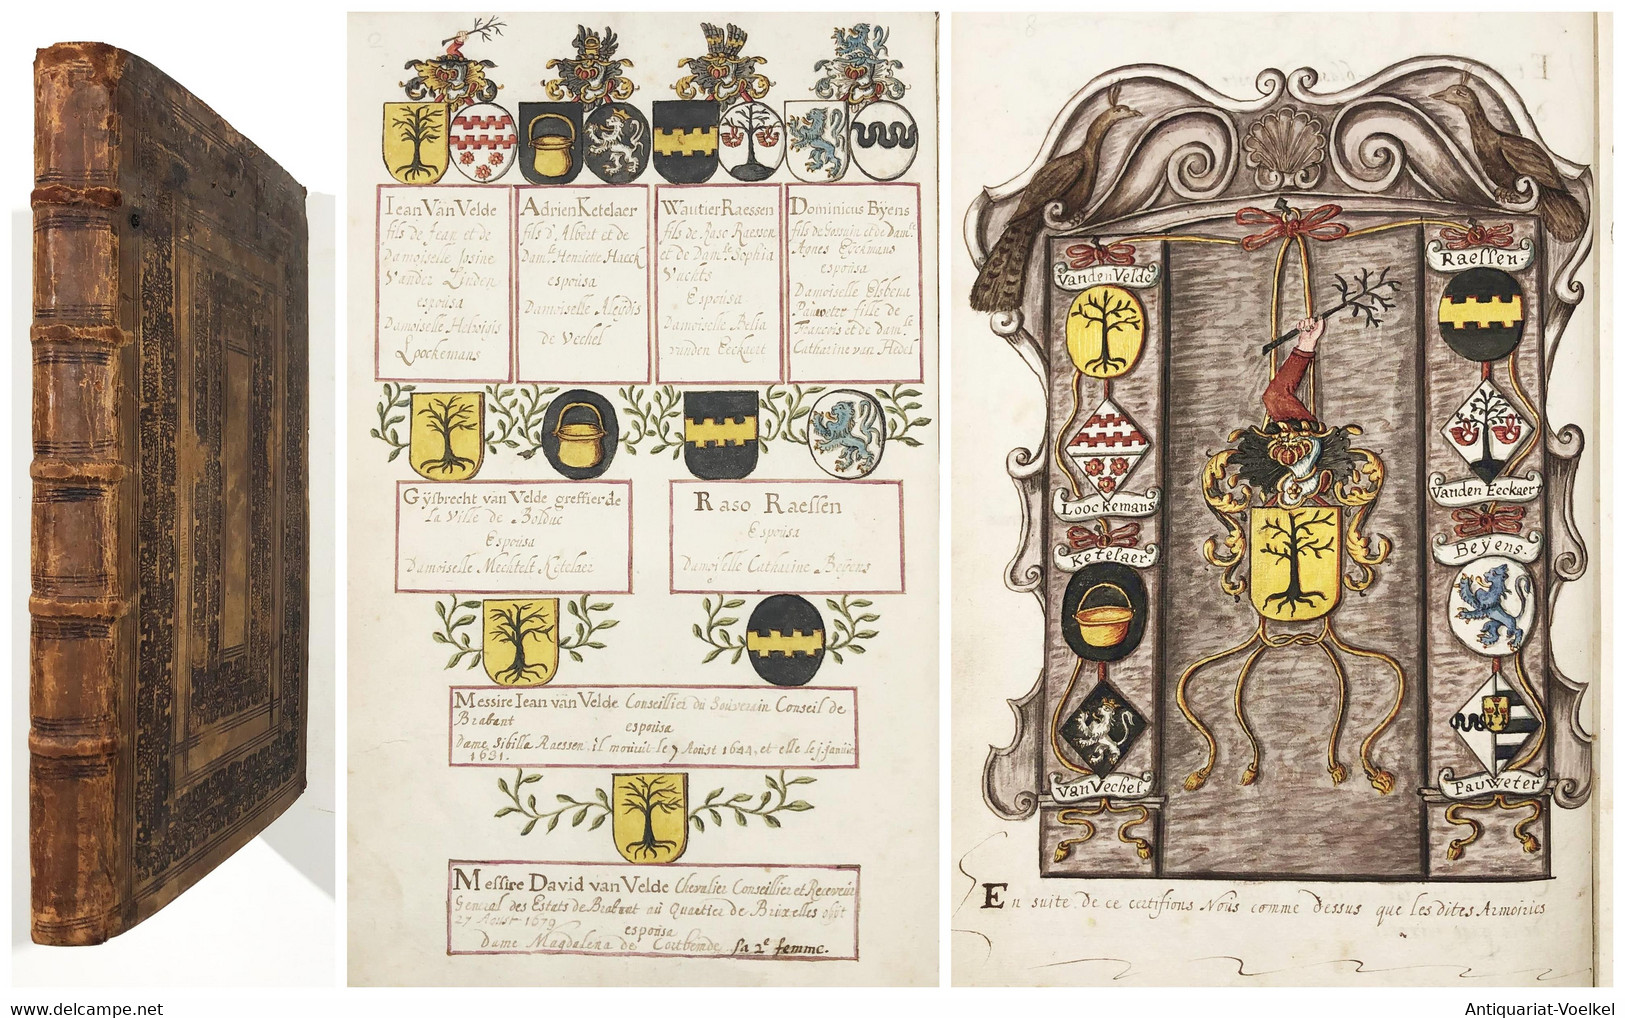 Jean Van Velde
fils de Jean et de
Damoiselle Josine
Vander Linden
espousa
Damoiselle Helwigis
Loockemans
Adrien Ketelaer
fils d'Albert et de
Dam.le Henriette Haeck
espousa
Damoiselle Aleydis
de Vechel
Wautier Raessen
fils de Raso Raessen
et de Dam.le Sophia
Vuchts
Espousa
Damoiselle Belia
vanden Eeckaert
Dominicus Beyens
fils de Gossuin et de Dam.le
Agnes Eyckmans
espousa
Damoiselle Elsbena
Pauweter fille de
François et de Dam.le
Catharine van Hedel
Gysbrecht van Velde greffier de
La Ville de Bolduc
Espousa
Damoiselle Mechtelt Ketelaer
Raso Raessen
Espousa
Damoiselle Catharine Beyens
Messire Jean van Velde Conseillier du Souverain Conseil de
Brabant
espousa
Dame Sibilla Raessen, il mourut le 7 Aoust 1644, et elle le
1681.
Messire David van Velde Chevalier Conseillier et Receveur
General des Estats de Brabant au Quartier de Bruxelles obyt
27 Aoust 1679
espousa
Dame Magdalena de Cortbemde sa 2e femme.
Vanden Velde
Loockemans
Ketelaer.
Van Vechel.
Raessen.
Vanden Eeckaert
Beyens.
Pauweter
En suite de ce certifions Nous comme dessus que les dites Armoiries
www.delcampe.net
Antiquariat-Voelkel